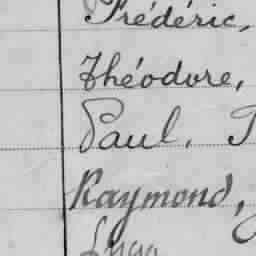 Frédéric,
Théodore,
Paul,
Raymond,